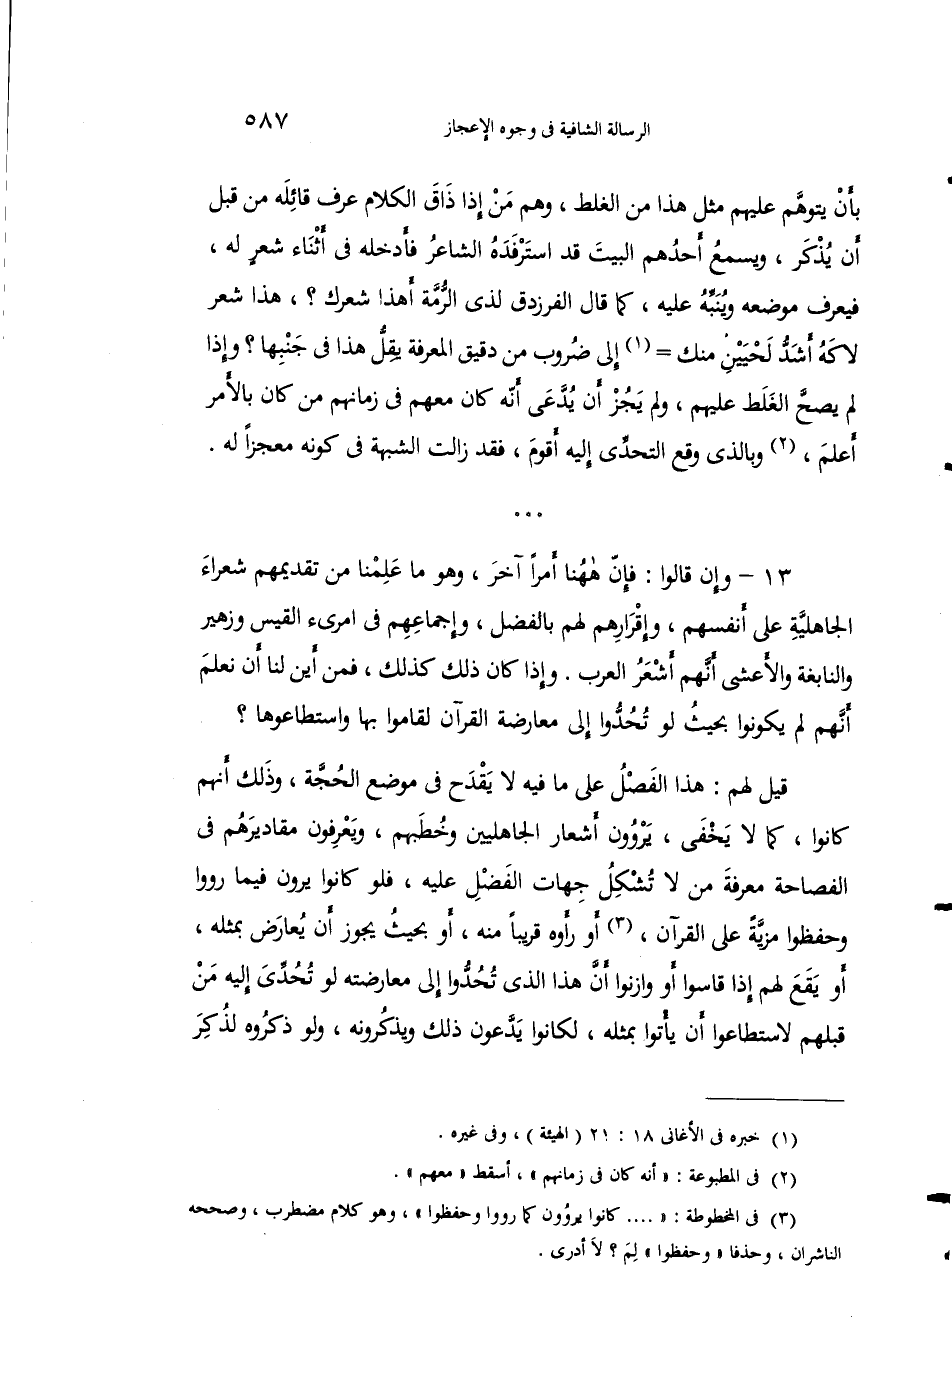 الرسالة الشافية فى وجوه الإعجاز ٥٨٧
بأَنْ يتوهَّم عليهم مثل هذا من الغلط ، وهم مَنْ إذا ذَاقَ الكلام عرف قائِلَه من قبل
أَن يُذْكَر ، ويسمعُ أحدُهم البيتَ قد استَرْفَدَهُ الشاعرُ فأَدخله فى أَثْنَاء شعرٍ له ،
فيعرف موضعه ويُنَبِّهُ عليه ، كما قال الفرزدق لذى الرُّمَّة أَهذا شعرك ؟ ، هذا شعر
لاكَهُ أَشَدُّ لَحْيَيْنِ منك = (١) إلى ضُروب من دقيق المعرفة يقِلُّ هذا فى جَنْبِها ؟ وإذا
لم يصحَّ الغَلَط عليهم ، ولم يَجُزْ أَن يُدَّعَى أَنّه كان معهم فى زمانهم من كان بالأَمر
أَعلمَ ، (٢) وبالذى وقع التحدِّى إليه أَقومَ ، فقد زالت الشبهة فى كونه معجزاً له .
...
١٣ - وإن قالوا : فإنّ هٰهُنا أَمراً آخرَ ، وهو ما عَلِمْنا من تقديمهم شعراءَ
الجاهليَّةِ على أَنفسهم ، وإقْرَارِهم لهم بالفضل ، وإجماعِهم فى امرىء القيس وزهير
والنابغة والأَعشى أَنَّهم أَشْعَرُ العرب . وإذا كان ذلك كذلك ، فمن أَين لنا أَن نعلمَ
أَنَّهم لم يكونوا بحيثُ لو تُحُدُّوا إلى معارضة القرآن لقاموا بها واستطاعوها ؟
قيل لهم : هذا الفَصْلُ على ما فيه لا يَقْدَح فى موضع الحُجَّة ، وذَلك أَنهم
كانوا ، كما لا يَخْفَى ، يَرْوُون أَشعار الجاهليين وخُطَبهم ، ويَعْرِفون مقاديرَهُم فى
الفصاحة معرفةَ من لا تُشْكِلُ جِهات الفَضْلِ عليه ، فلو كانوا يرون فيما رووا
وحفظوا مزيَّةً على القرآن ، (٣) أَو رأَوه قريباً منه ، أَو بحيثُ يجوز أَن يُعارَض بمثله ،
أَو يَقَعَ لهم إذا قاسوا أَو وازنوا أَنَّ هذا الذى تُحُدُّوا إلى معارضته لو تُحُدِّىَ إليه مَنْ
قبلهم لاستطاعوا أَن يأْتوا بمثله ، لكانوا يَدَّعون ذلك ويذكُرونه ، ولو ذكرُوه لذُكِرَ
(١) خبره فى الأغانى ١٨ : ٢١ ( الهيئة ) ، وفى غيره .
(٢) فى المطبوعة : « أنه كان فى زمانهم » ، أسقط « معهم » .
(٣) فى المخطوطة : « .... كانوا يروُون كما رووا وحفظوا » ، وهو كلام مضطرب ، وصححه
الناشران ، وحذفا « وحفظوا » لِمَ ؟ لا أدرى .